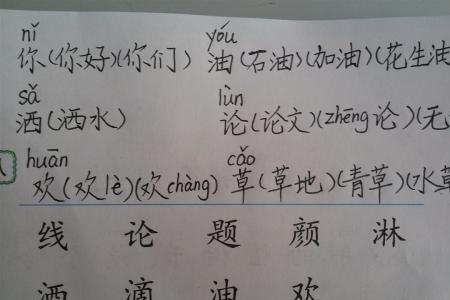 nǐ yóu
你(你好)(你们) 油(石油)(加油)(花生油
sǎ lùn
洒(洒水) 论(论文)(zhēng论)(无
huān cǎo
欢(欢lè)(欢chàng) 草(草地)(青草)(水草
线 论 题 颜 淋
洒 滴 油 欢